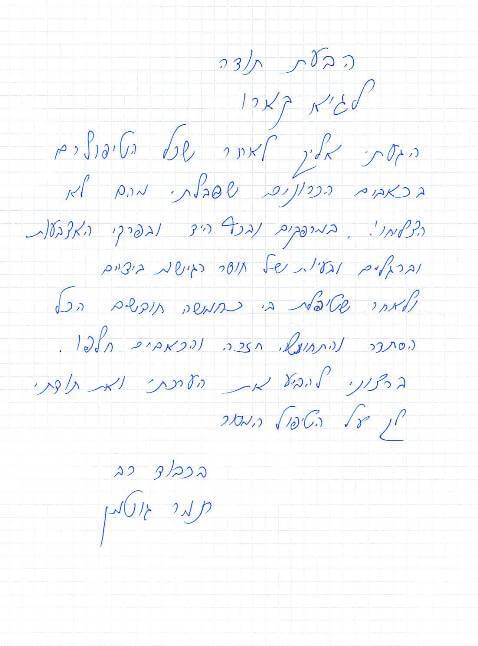 הבעת תודה
לגיא קארו
הגעתי אליך לאחר שכל הטיפולים
בכאבים הכרוניים שסבלתי מהם לא
הצלחו. במרפקים ובכף היד ובפרקי האצבעות
וברגליים ובעיות של חוסר רגישות בידיים
ולאחר שטיפלת בי כחמשה חודשים הכל
הסתדר והתחושה חזרה והכאבים חלפו.
ברצוני להביע את הערכתי ואת תודתי
לך על הטיפול המסור
בכבוד רב
תמר גוטמן